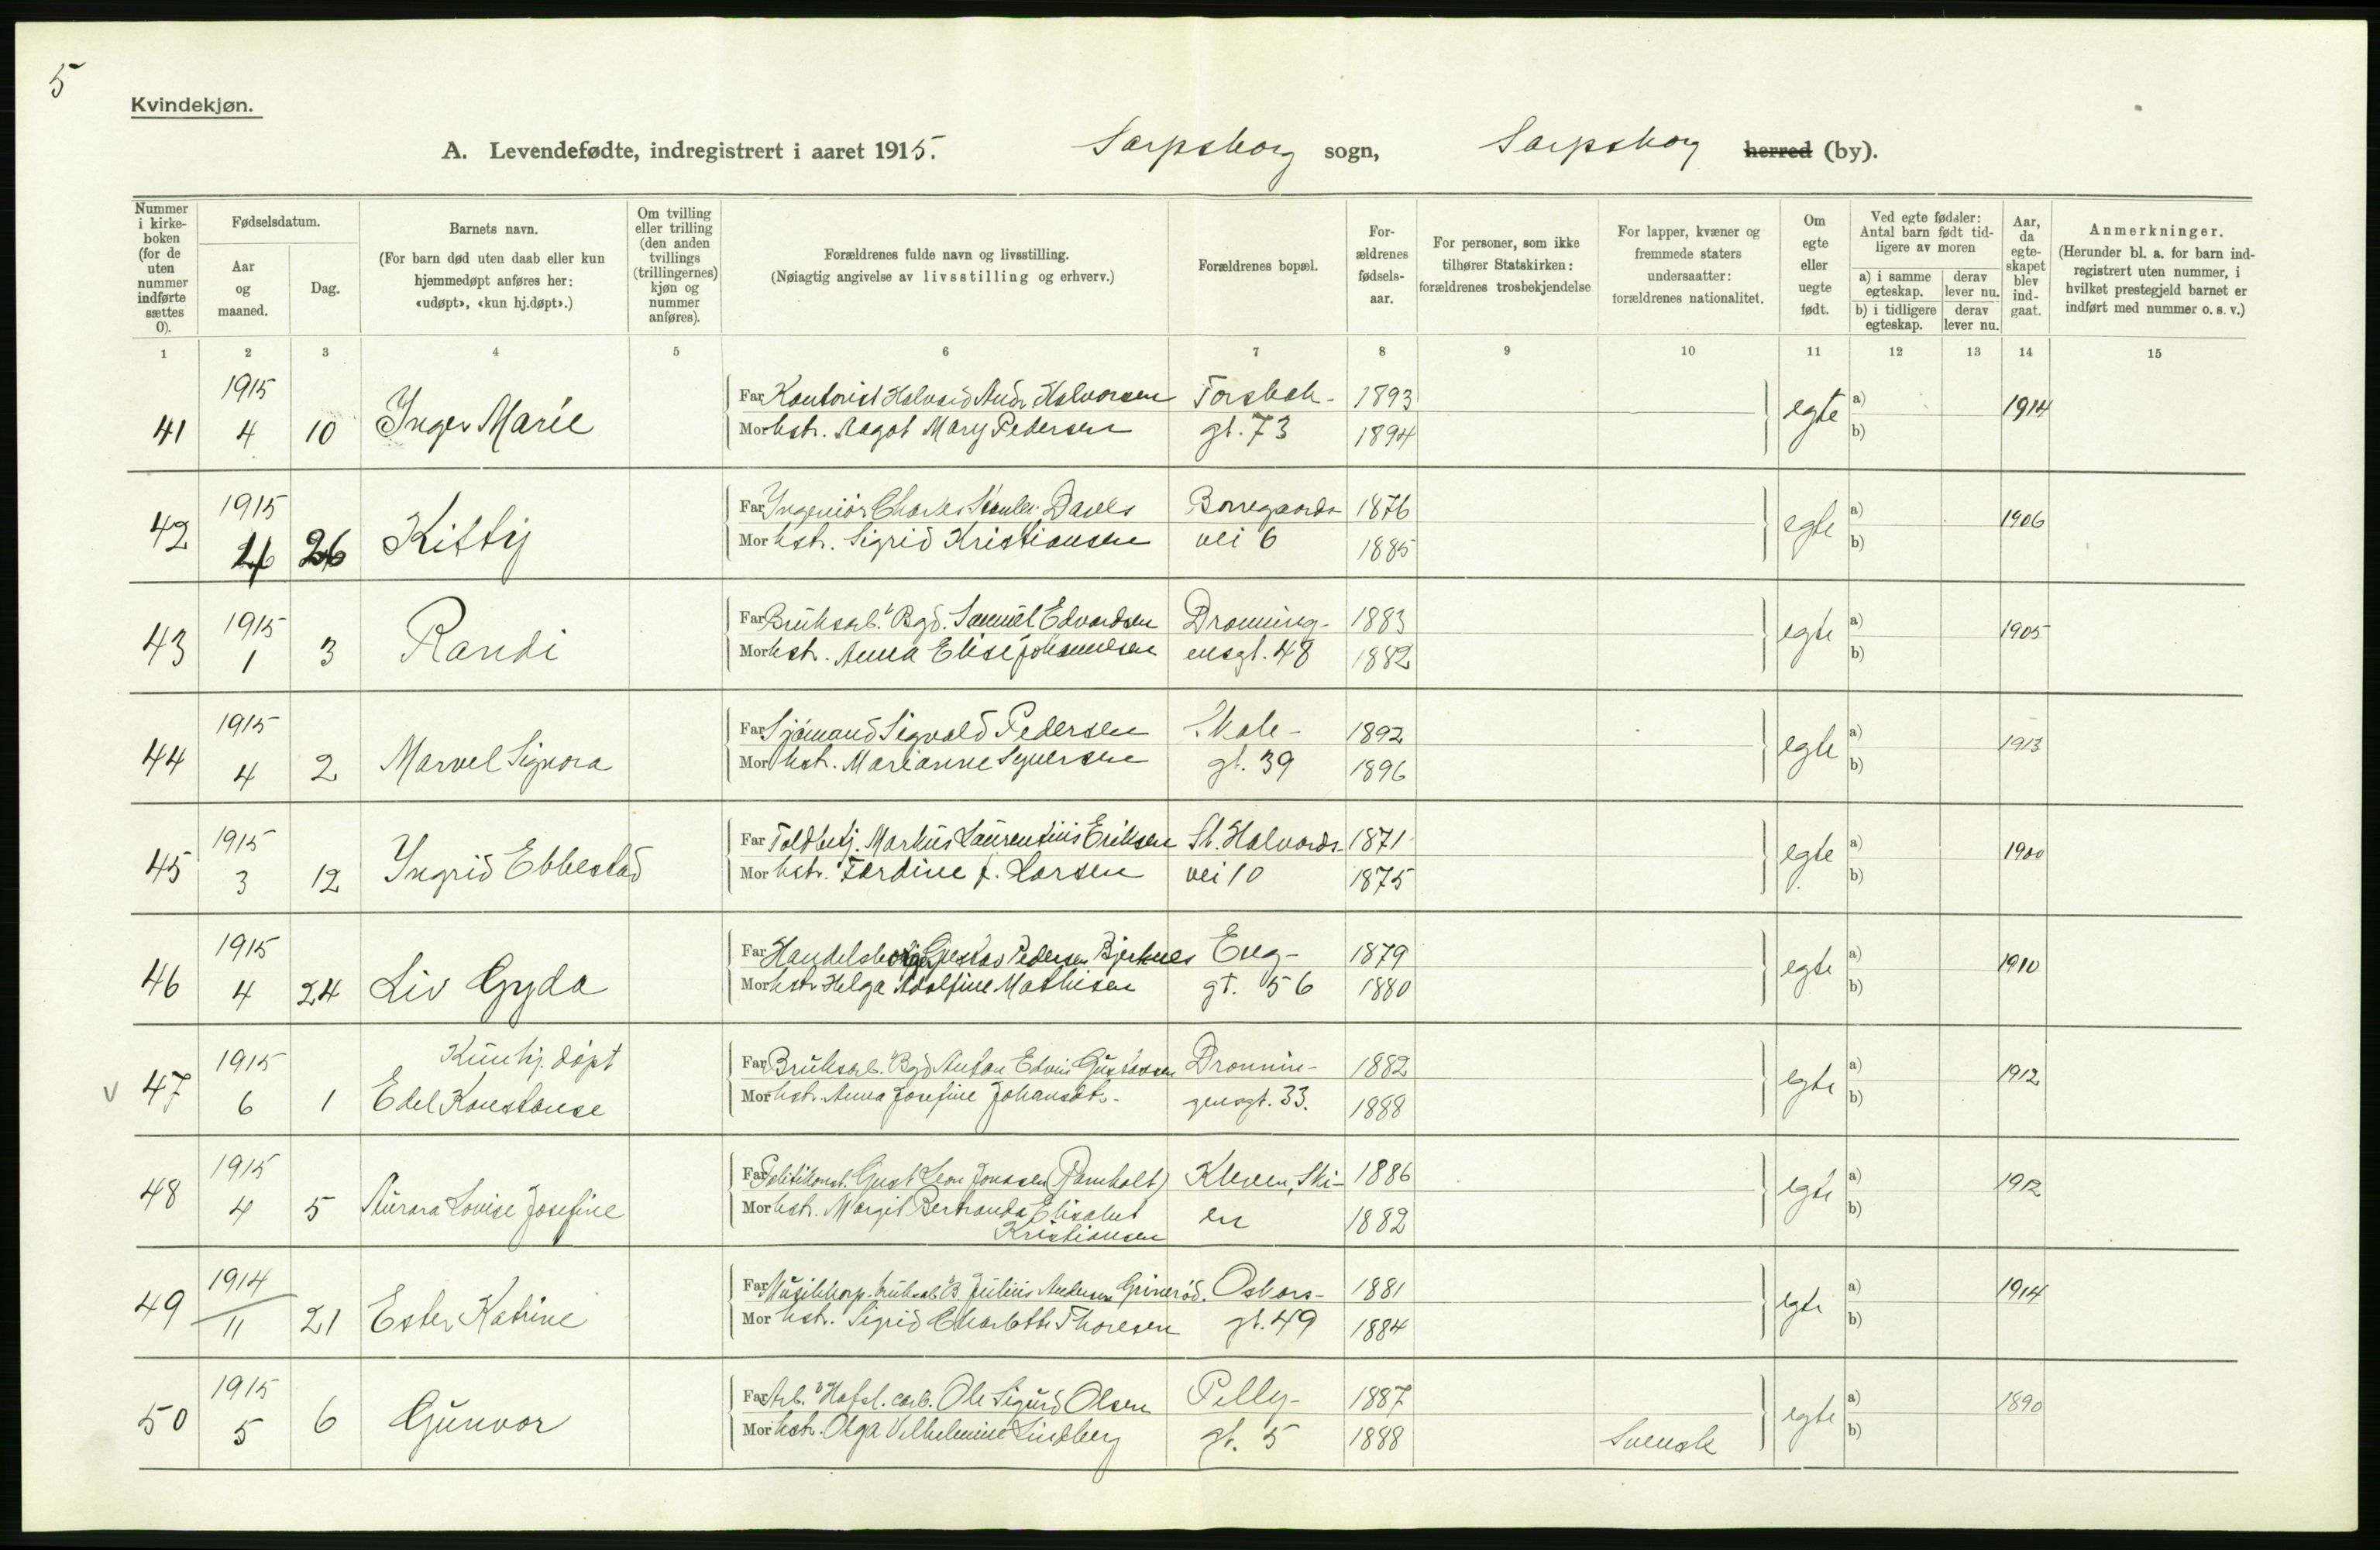 5
Kvindekjøn.
A. Levendefødte, indregistrert i aaret 1915. Sarpsborg sogn, Sarpsborg herred (by).
Nummer i kirke-boken (for de uten nummer indførte sættes 0).
Fødselsdatum.
Aar og maaned.
Dag.
Barnets navn.
(For barn død uten daab eller kun hjemmedøpt anføres her: «udøpt», «kun hj.døpt».)
Om tvilling eller trilling (den anden tvillings (trillingernes) kjøn og nummer anføres).
Forældrenes fulde navn og livsstilling.
(Nøiagtig angivelse av livsstilling og erhverv.)
Forældrenes bopæl.
For-ældrenes fødsels-aar.
For personer, som ikke tilhører Statskirken: forældrenes trosbekjendelse
For lapper, kvæner og fremmede staters undersaatter: forældrenes nationalitet.
Om egte eller uegte født.
Ved egte fødsler: Antal barn født tid-ligere av moren
a) i samme egteskap.
derav lever nu.
b) i tidligere egteskap.
derav lever nu.
Aar, da egte-skapet blev ind-gaat.
Anmerkninger.
(Herunder bl. a. for barn ind-registrert uten nummer, i hvilket prestegjeld barnet er indført med nummer o. s. v.)
1 2 3 4 5 6 7 8 9 10 11 12 13 14 15
1915 Far Kontorist Halvard Andr. Halvorsen Torsbek- 1893 egte a) 1914
41 4 10 Inger Marie Mor hstr. Aagot Mary Pedersen gt. 73 1894 b)
1915 Far Ingeniør Charles Dawes Borregaards- 1876 egte a) 1906
42 26 Kitty Mor hstr. Sigrid Kristiansen vei 6 1885 b)
1915 Far Bruksarb. v Bgd. Samuel Edvardsen Dronning- 1883 egte a) 1905
43 1 3 Randi Mor hstr. Anna Elise Johannesen ensgt. 48 1882 b)
1915 Far Sjömand Sigvald Pedersen Skole- 1892 egte a) 1913
44 4 2 Marvel Signora Mor hstr. Marianne Syversen gt. 39 1896 b)
1915 Far Toldbetj. Markus Laurentius Eriksen St. Halvards- 1871 egte a) 1900
45 3 12 Ingrid Ebbestad Mor hstr. Tordine J. Larsen vei 10 1875 b)
1915 Far Gustav Pedersen Bjerknes Eng- 1879 egte a) 1910
46 4 24 Liv Gyda Mor hstr. Helga Adolfine Mathisen gt. 56 1880 b)
Kun hj. döpt
1915 Far Bruksarb. v Bgd Anton Edvin Gustavsen Dronnin- 1882 egte a) 1912
v 47 6 1 Edel Konstanse Mor hstr. Anna Josefine Johansdt. gensgt. 33. 1888 b)
1915 Far Politikonst. Gust Leon Jonassen (Ramholt) Kleven, Ski- 1886 egte a) 1912
48 4 5 Aurora Lovise Josefine Mor hstr. Margit Bertranda Elisabet en 1882 b)
Kristiansen
1914 Far Julius Andersen Grinerød. Oskars- 1881 egte a) 1914
49 11 21 Ester Katrine Mor hstr. Sigrid Charlotte Thoresen gt. 49 1884 b)
1915 Far Arb. v Hafsl. carb. Ole Sigurd Olsen Pelly- 1887 egte a) 1890
50 5 6 Gunvor Mor hstr. Olga Vilhelmine Lindberg gt. 5 1888 Svensk b)